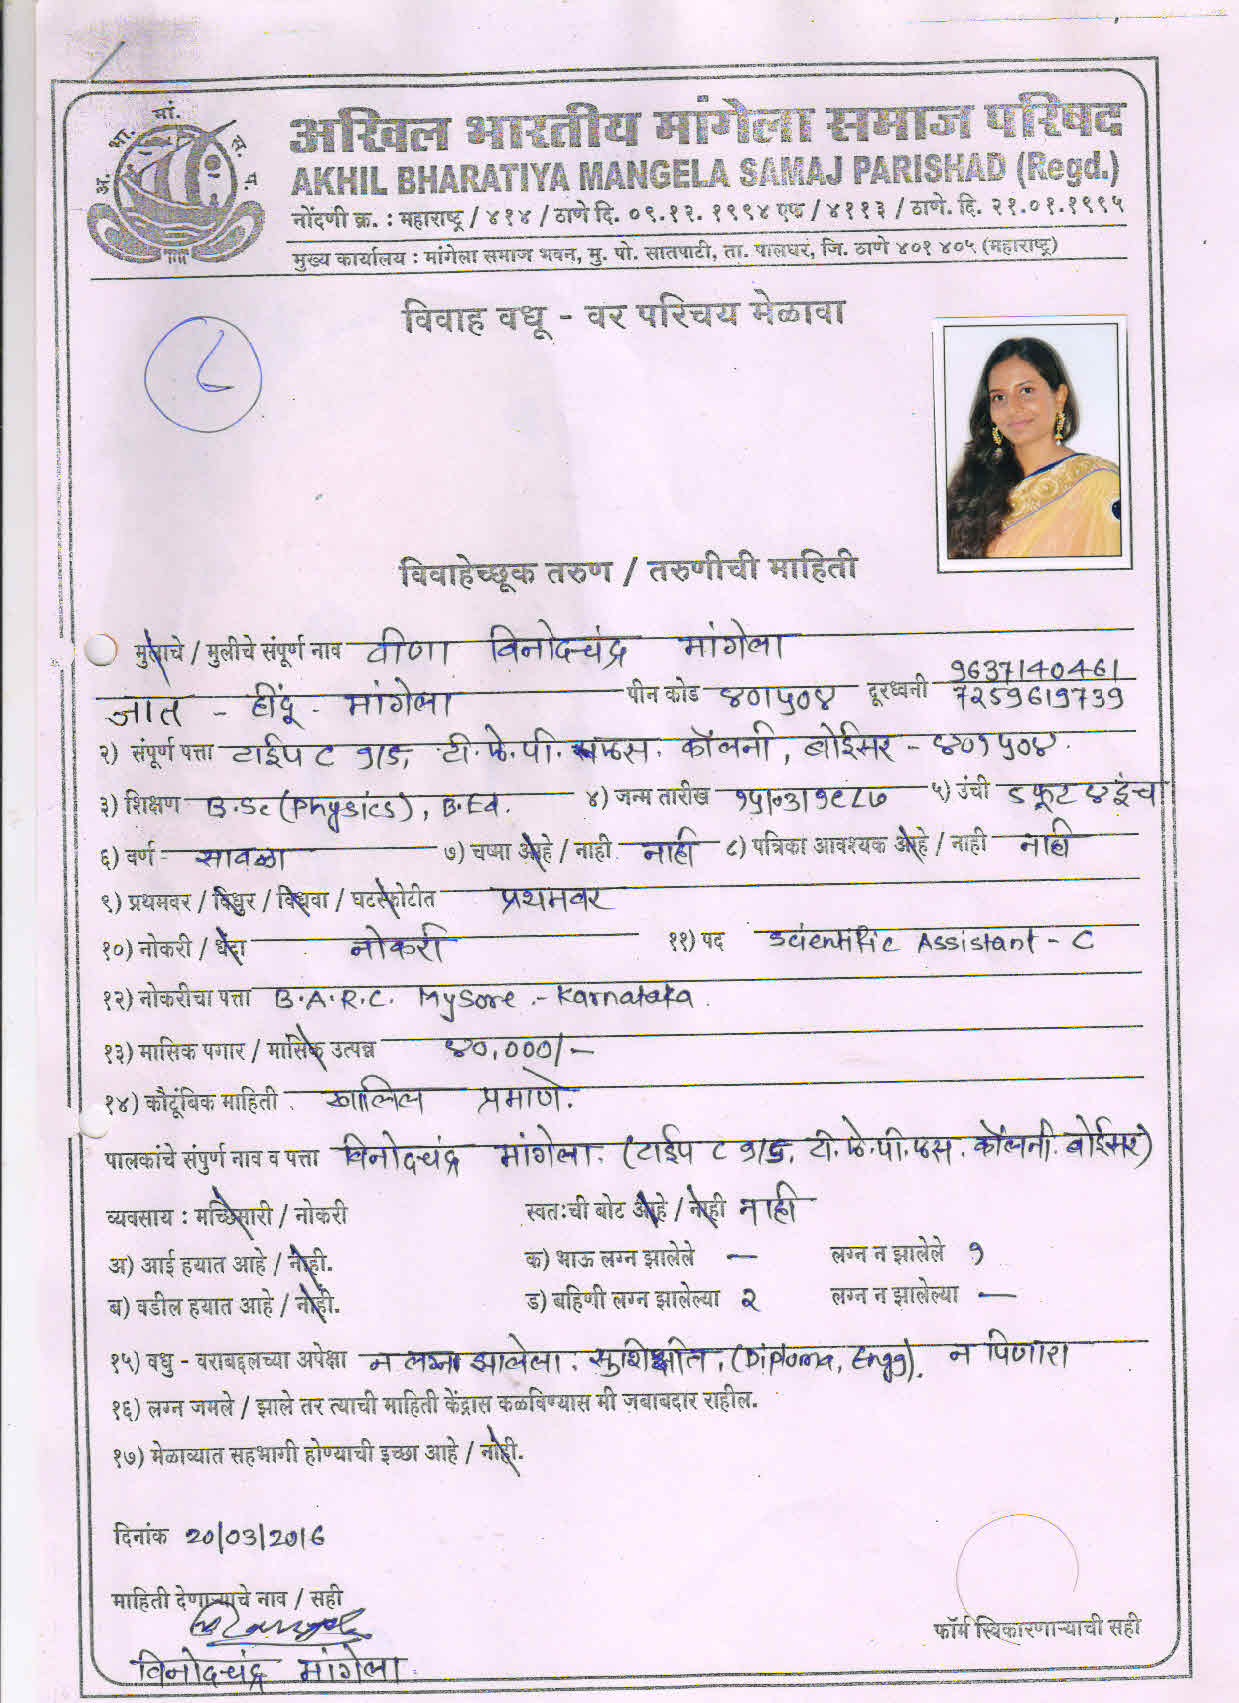 अ. भा. मां. स. प.
अखिल भारतीय मांगेला समाज परिषद
AKHIL BHARATIYA MANGELA SAMAJ PARISHAD (Regd.)
नोंदणी क्र. : महाराष्ट्र / ४१४ / ठाणे दि. ०९.१२. १९९४ एफ / ४११३ / ठाणे. दि. २१.०१.१९९५
मुख्य कार्यालय : मांगेला समाज भवन, मु. पो. सातपाटी, ता. पालघर, जि. ठाणे ४०१ ४०५ (महाराष्ट्र)
विवाह वधू - वर परिचय मेळावा
८
विवाहेच्छूक तरुण / तरुणीची माहिती
मुलाचे / मुलीचे संपूर्ण नाव वीणा विनोदचंद्र मांगेला
जात - हींदू - मांगेला पीन कोड ४०१५०४ दूरध्वनी 9637140461
7259619739
२) संपूर्ण पत्ता टाईप ८ ९/८, टी. फे. पी. एस. कॉलनी, बोईसर - ४०१५०४.
३) शिक्षण B.Sc (Physics), B.Ed. ४) जन्म तारीख १५।०३।१९८७ ५) उंची ५ फूट ४ इंच
६) वर्ण सावळा ७) चष्मा आहे / नाही नाही ८) पत्रिका आवश्यक आहे / नाही नाही
९) प्रथमवर / विधुर / विधवा / घटस्फोटीत प्रथमवर
१०) नोकरी / धंदा नोकरी ११) पद Scientific Assistant - C
१२) नोकरीचा पत्ता B.A.R.C. Mysore - Karnataka.
१३) मासिक पगार / मासिक उत्पन्न ४०,०००/-
१४) कौटूंबिक माहिती खालिल प्रमाणे.
पालकांचे संपुर्ण नाव व पत्ता विनोदचंद्र मांगेला. (टाईप ८ ९/८, टी. फे. पी. एस. कॉलनी. बोईसर)
व्यवसाय : मच्छिमारी / नोकरी स्वतःची बोट आहे / नाही नाही
अ) आई हयात आहे / नाही. क) भाऊ लग्न झालेले — लग्न न झालेले १
ब) वडील हयात आहे / नाही. ड) बहिणी लग्न झालेल्या २ लग्न न झालेल्या —
१५) वधु - वराबद्दलच्या अपेक्षा न लग्न झालेला. सुशिक्षीत, (Diploma, Engg). न पिणारा
१६) लग्न जमले / झाले तर त्याची माहिती केंद्रास कळविण्यास मी जबाबदार राहील.
१७) मेळाव्यात सहभागी होण्याची इच्छा आहे / नाही.
दिनांक 20/03/2016
माहिती देणाऱ्याचे नाव / सही
विनोदचंद्र मांगेला
फॉर्म स्विकारणाऱ्याची सही